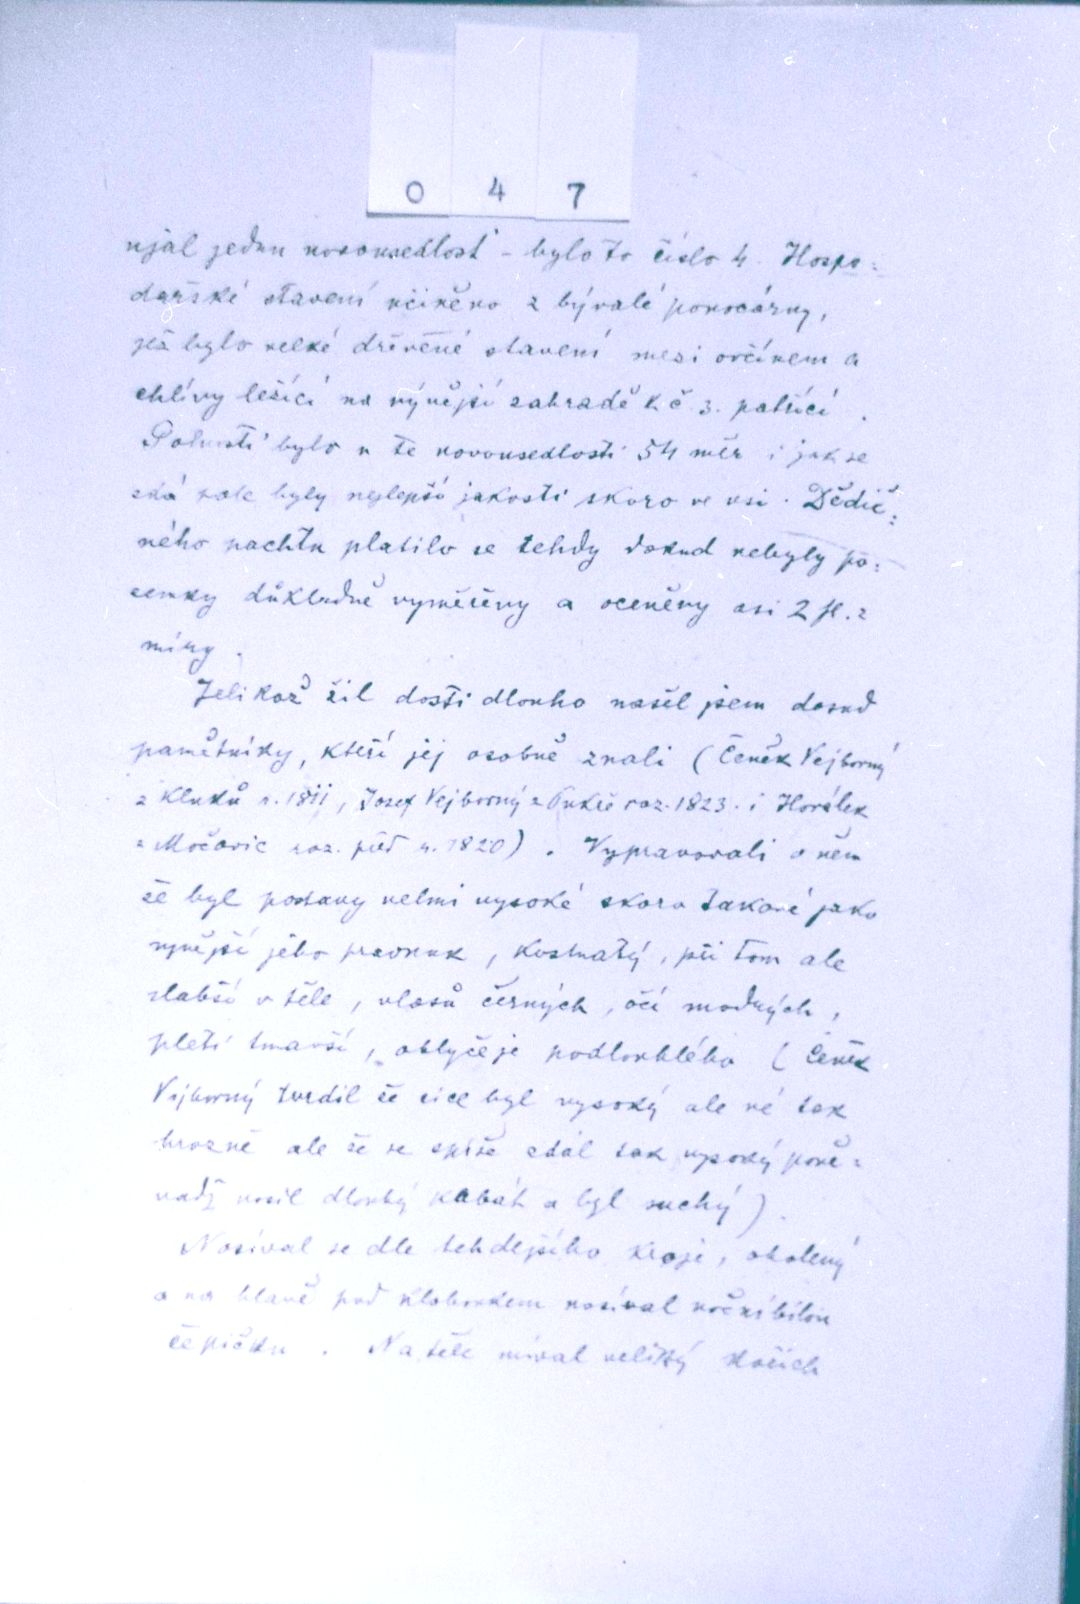 0 4 7
ujal jednu novousedlost - bylo to číslo 4. Hospo=
dařské stavení učiněno z bývalé ponocárny,
jež bylo velké dřevěné stavení mezi ovčínem a
chlívy ležící na nynější zahradě k č. 3. patřící.
Polností bylo u té novousedlosti 54 měr i jak se
zdá pole byly nejlepší jakosti skoro ve vsi. Dědič=
ného pachtu platilo se tehdy dokud nebyly po=
zemky důkladně vyměřeny a oceněny asi 2 fl. z
míry.
Jelikož žil dosti dlouho našel jsem dosud
pamětníky, kteří jej osobně znali (Čeněk Vejborný
z Kluků r. 1811, Josef Vejborný z roz. 1823. i Horálek
z Močovic roz. r. 1820). Vypravovali o něm
že byl postavy velmi vysoké skoro takové jako
nynější jeho pravnuk, kostnatý, při tom ale
slabší v těle, vlasů černých, očí modrých,
pleti tmavší, obličeje podlouhlého (Čeněk
Vejborný tvrdil že sice byl vysoký ale né tak
hrozně ale že se spíše zdál tak vysoký poně=
vadž nosil dlouhý kabát a byl suchý).
Nosíval se dle tehdejšího kroje, oholený
a na hlavě pod kloboukem nosíval noční bílou
čepičku. Na těle míval veliký kožich